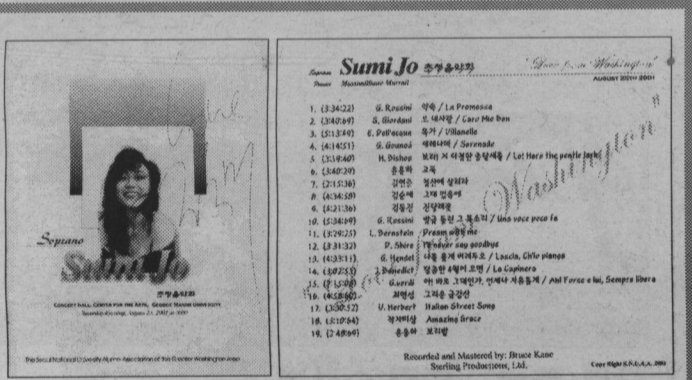 Soprano
Sumi Jo
초청음악회
CONCERT HALL, CENTER FOR THE ARTS, GEORGE MASON UNIVERSITY
The Seoul National University Alumni Association of the Greater Washington Area
Soprano Sumi Jo 초청음악회
"Live from Washington"
AUGUST 25TH 2001
1. (3:34:22) G. Rossini 약속 / La Promessa
2. (3:40:69) G. Giordani 오 내사랑 / Caro Mio Ben
3. (5:13:49) E. Dell'Acqua 목가 / Villanelle
4. (4:14:51) G. Gounod 세레나데 / Serenade
5. (3:19:40) H. Bishop 보라! 저 다정한 종달새를 / Lo! Here the gentle lark!
6. (3:40:20) 윤용하 고독
7. (2:15:36) 김연준 청산에 살리라
8. (4:34:58) 김순애 그대 있음에
9. (4:21:36) 김동진 진달래꽃
10. (5:34:69) G. Rossini 방금 들린 그 목소리 / Una voce poco fa
11. (3:29:25) L. Bernstein Dream with me
12. (3:31:32) D. Shire I'll never say goodbye
13. (4:33:11) G. Handel 나를 울게 버려두오 / Lascia, Ch'io pianga
14. J. Benedict 달콤한 4월이 오면 / La Capinera
15. G. verdi 아! 바로 그대인가, 언제나 자유롭게 / Ah! Forse e lui, Sempre libera
16. 최영섭 그리운 금강산
17. (3:30:52) V. Herbert Italian Street Song
18. (5:10:64) 작자미상 Amazing Grace
19. (2:48:69) 윤용하 보리밭
"Live from Washington"
Recorded and Mastered by: Bruce Kane
Sterling Productions, Ltd.
Copy Right S.N.U.A.A. 2001